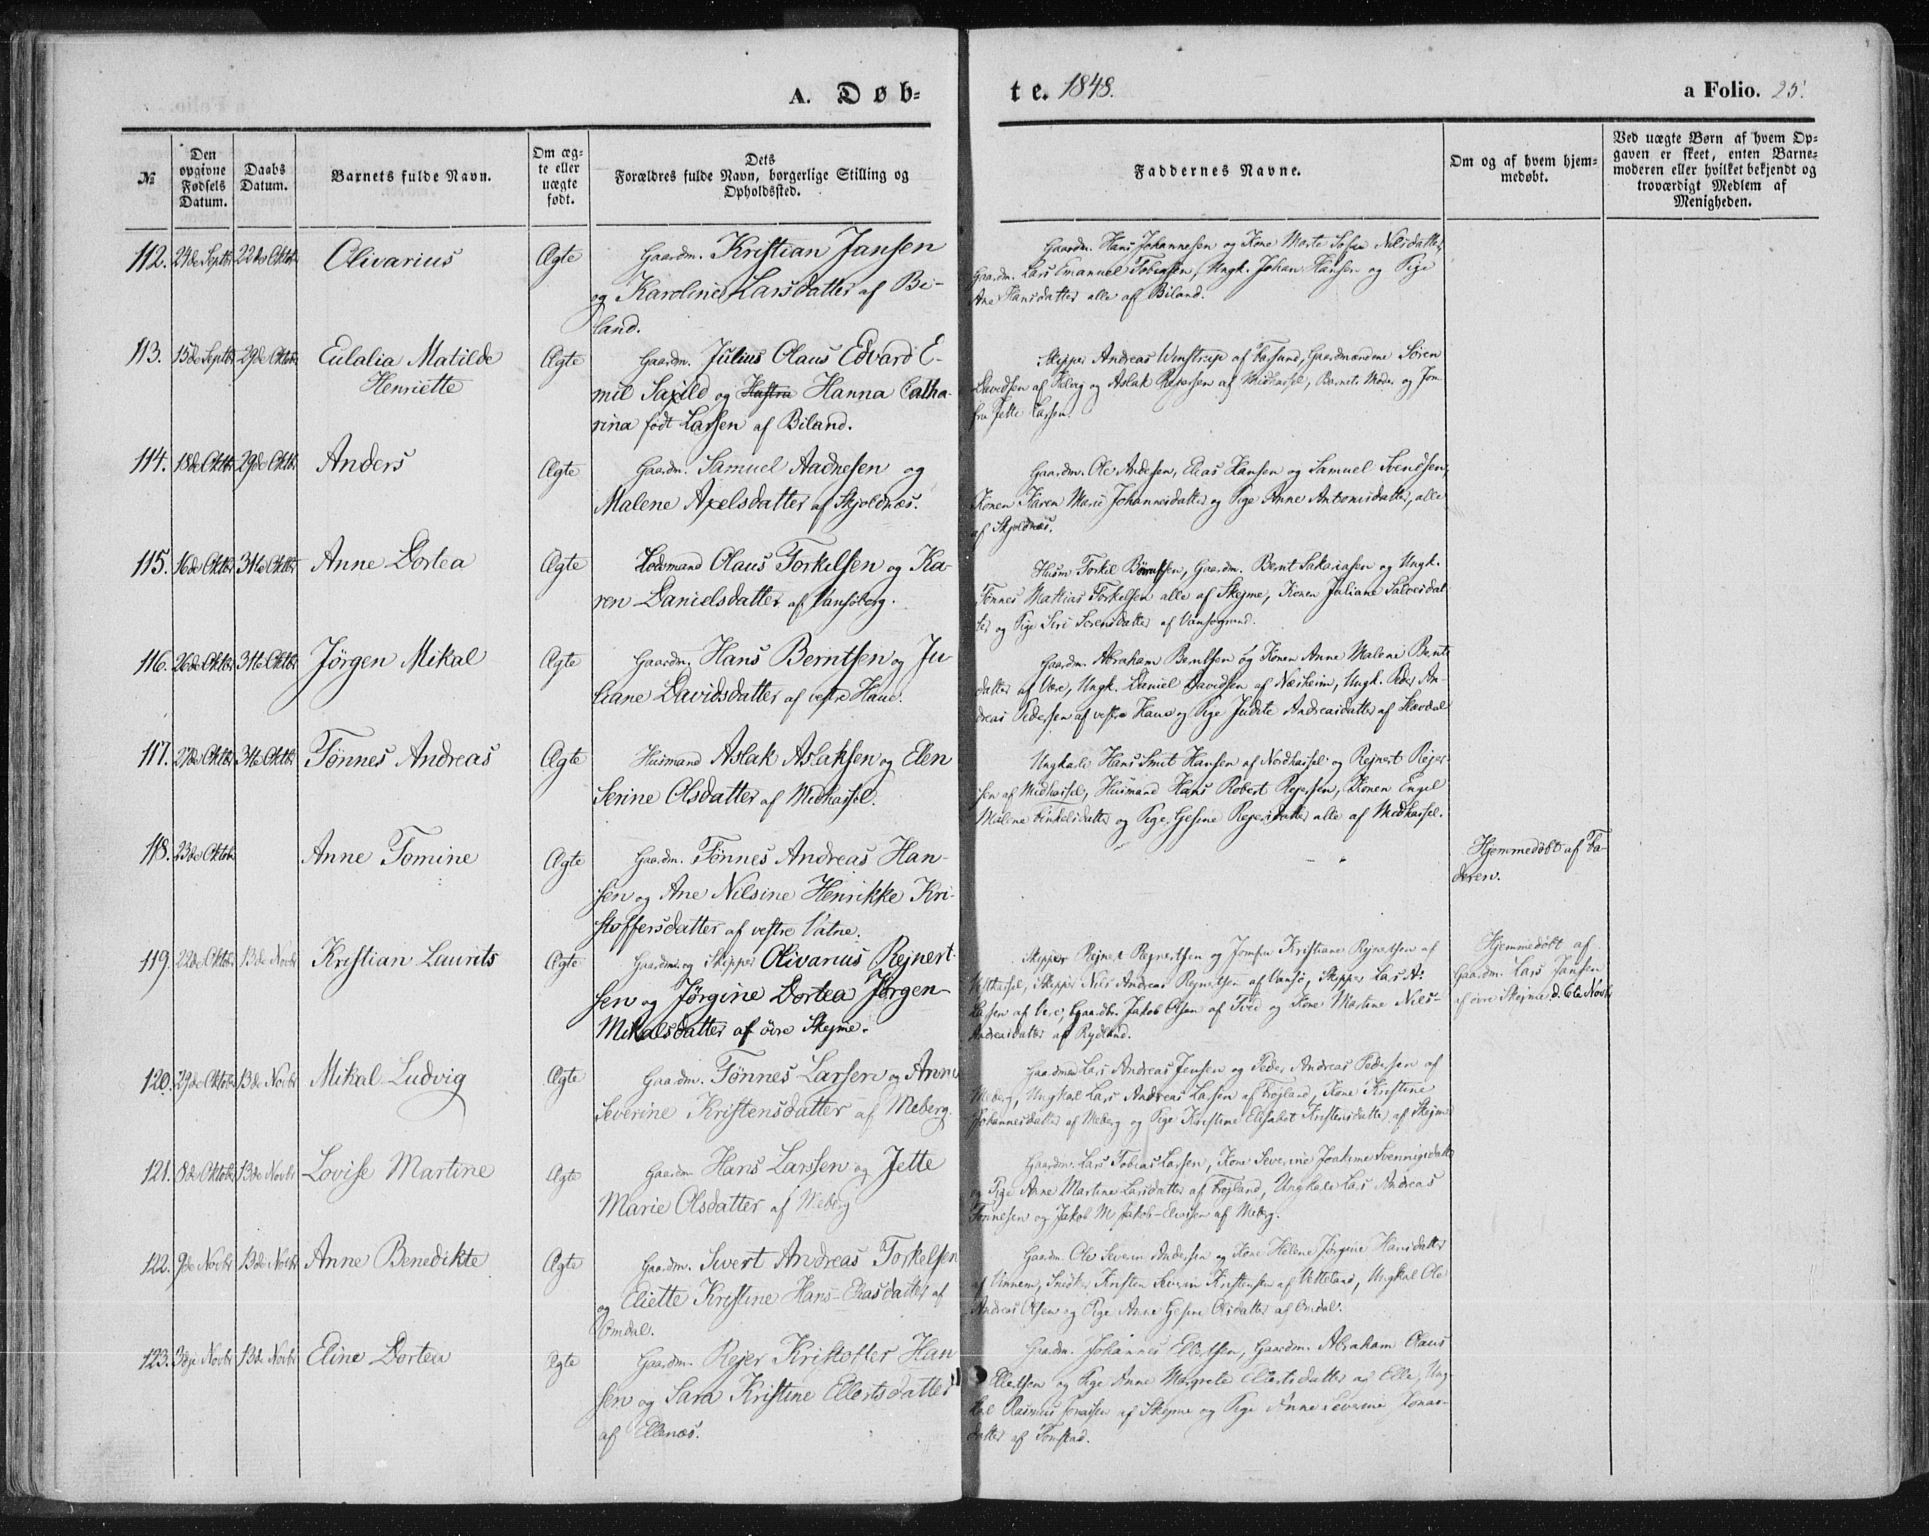 A. Døb-
te. 1848.
a Folio. 25.
№
Den opgivne Fødsels Datum.
Daabs Datum.
Barnets fulde Navn.
Om ægte eller uægte født.
Dets Forældres fulde Navn, borgerlige Stilling og Opholdssted.
Faddernes Navne.
Om og af hvem hjemmedøbt.
Ved uægte Børn af hvem Opgaven er skeet, enten Barnemoderen eller hvilket bekjendt og troværdigt Medlem af Menigheden.
112. 24de Septbr 22de Oktbr Olivarius Ægte Gaardm. Kristian Jansen
og Karoline Larsdatter af Bi-
land.
Gaardm. Hans Johannesen og Kone Marte Sofie Nilsdatter,
Gaardm. Lars Emanuel Tobiasen, Ungk. Johan Hansen og Pige
Ane Hansdatter alle af Biland.
113. 15de Septbr 29de Oktbr Eulalia Matilde
Henriette
Ægte Gaardm. Julius Olaus Edvard E-
mil Saxild og Hustru Hanna Catha-
rina født Larsen af Biland.
Skipper Andreas Winstrup af Farsund, Gaardmændene Sören
Davidsen af og Aslak Rejersen af Midhassel, Barnets Moder og Jom-
fru Jette Larsen.
114. 18de Oktbr 29de Oktbr Anders Ægte Gaardm. Samuel Aadnesen og
Malene Axelsdatter af Skjoldnæs.
Gaardm. Ole Andersen, Elias Hansen og Samuel Svendsen,
Konen Karen Marie Johannesdatter og Pige Anne Antonisdatter, alle
af Skjoldnæs.
115. 16de Oktbr 31te Oktbr Anne Dortea Ægte Lodsmand Olaus Torkelsen og Ka-
ren Danielsdatter af Vansöberg.
Husm Torkil Berntsen, Gaardm. Bernt Sakariasen og Ungk.
Tönnes Mathias Torkelsen alle af Skejme, Konen Juliane Salvesdat-
ter og Pige Siri Sörensdatter af Vansögrund.
116. 26de Oktbr 31te Oktbr Jörgen Mikal Ægte Gaardm. Hans Berntsen og Ju-
liane Davidsdatter af vestre Haue.
Gaardm. Abraham Berntsen og Konen Anne Malene Bernts-
datter af Ore, Ungk. Daniel Davidsen af Næsheim, Ungk. Peder An-
dreas Pedersen af vestre Haue og Pige Judite Andreasdatter af
117. 27de Oktbr 31te Oktbr Tönnes Andreas Ægte Husmand Aslak Aslaksen og Elen
Serine Olsdatter af Midhassel.
Ungkarle Hans Smit Hansen af Nordhassel og Rejnert Rejer-
sen af Midhassel, Husmand Hans Robert Rejersen, Konen Engel
Malene Tinkelsdatter og Pige Gesine Rejersdatter alle af Midhassel.
118. 23de Oktbr Anne Tomine Ægte Gaardm. Tönnes Andreas Han-
sen og Ane Nilsine Henrikke Kri-
stoffersdatter af vestre Vatne.
Hjemmedöbt af Fa-
deren.
119. 22de Oktbr 13de Novbr Kristian Laurits Ægte Gaardm. og Skipper Olivarius Rejnert-
sen og Jörgine Dortea Jörgen-
Mikalsdatter af övre Skejme.
Skipper Rejnert Rejnertsen og Jomfru Kristiane Rejnertsen af
Vesthassel, Skipper Nils Andreas Rejnertsen af Vansö, Skipper Lars A.
Larsen af Ore, Gaardbr. Jakob Olsen af Tved og Kone Martine Nils-
Andreasdatter af Rydland.
Hjemmedöbt af
Gaardm. Lars Jansen
af övre Skejme d. 6te Novbr
120. 29de Oktbr 13de Novbr Mikal Ludvig Ægte Gaardm. Tönnes Larsen og Anne
Severine Kristensdatter af Meberg.
Gaardmænd Lars Andreas Jensen og Peder Andreas Pedersen af
Meberg, Ungkal Lars Andreas Larsen af Fröjland, Kone Kristine
Johannesdatter af Meberg og Pige Kirstine Elisabet Kristensdatter af Skejme
121. 8de Oktbr 13de Novbr Lovise Martine Ægte Gaardm Hans Larssen og Jette
Marie Olsdatter af Meberg
Gaardm. Lars Tobias Larsen, Kone Severine Joakime Svennigsdatter
og Pige Anne Martine Larsdatter af Fröjland, Ungkale Lars Andreas
Tönnesen og Jakob M Jakob-Elvisen af Meberg.
122. 9de Novbr 13de Novbr Anne Benedikte Ægte Gaardm. Sivert Andreas Torkelsen
og Eliette Kristine Hans-Eliasdatter af
Omdal.
Gaardm. Ole Severin Andersen og Kone Helene Jörgine Hansdatter
af Vinnem, Snedker Kristen Severin Kristensen af Vetteland, Ungkal Ole
Andreas Olsen og Pige Anne Gesine Olsdatter af Omdal.
123. 3die Novbr 13de Novbr Eline Dortea Ægte Gaardm. Rejer Kristoffer Han-
sen og Sara Kristine Ellertsdatter
af Ellenæs.
Gaardm. Johannes Ellertsen, Gaardm. Abraham Olaus
Ellertsen og Pige Anne Margrete Ellertsdatter af Elle, Ung-
kal Rasmus Jonassen af Skejme og Pige Anne Severine Jonas-
datter af Tomstad.